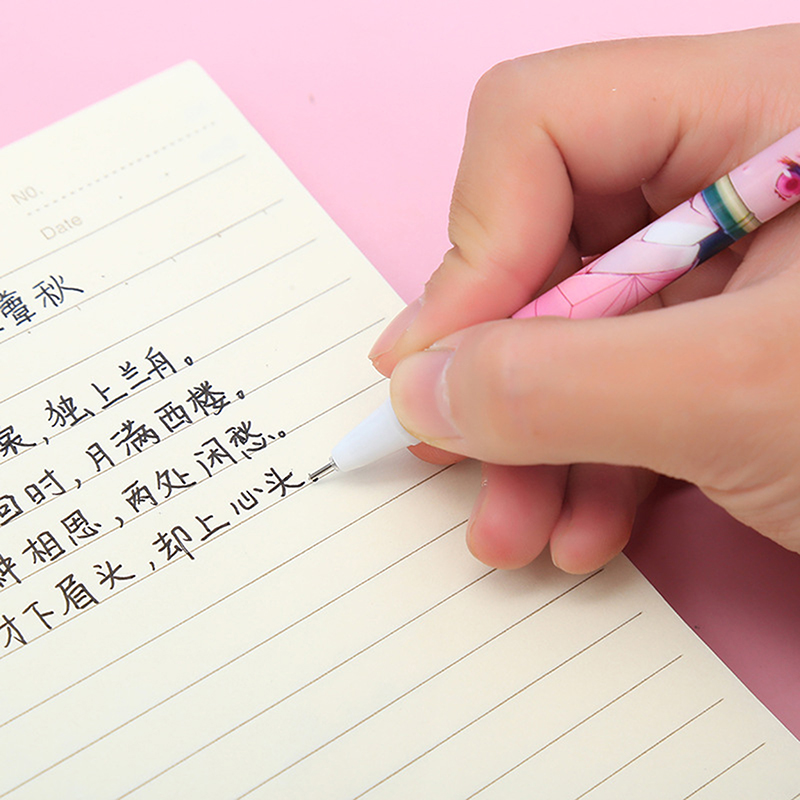 NO.
Date
藕香残玉簟秋
裳,独上兰舟。
回时,月满西楼。
种相思,两处闲愁。
才下眉头,却上心头